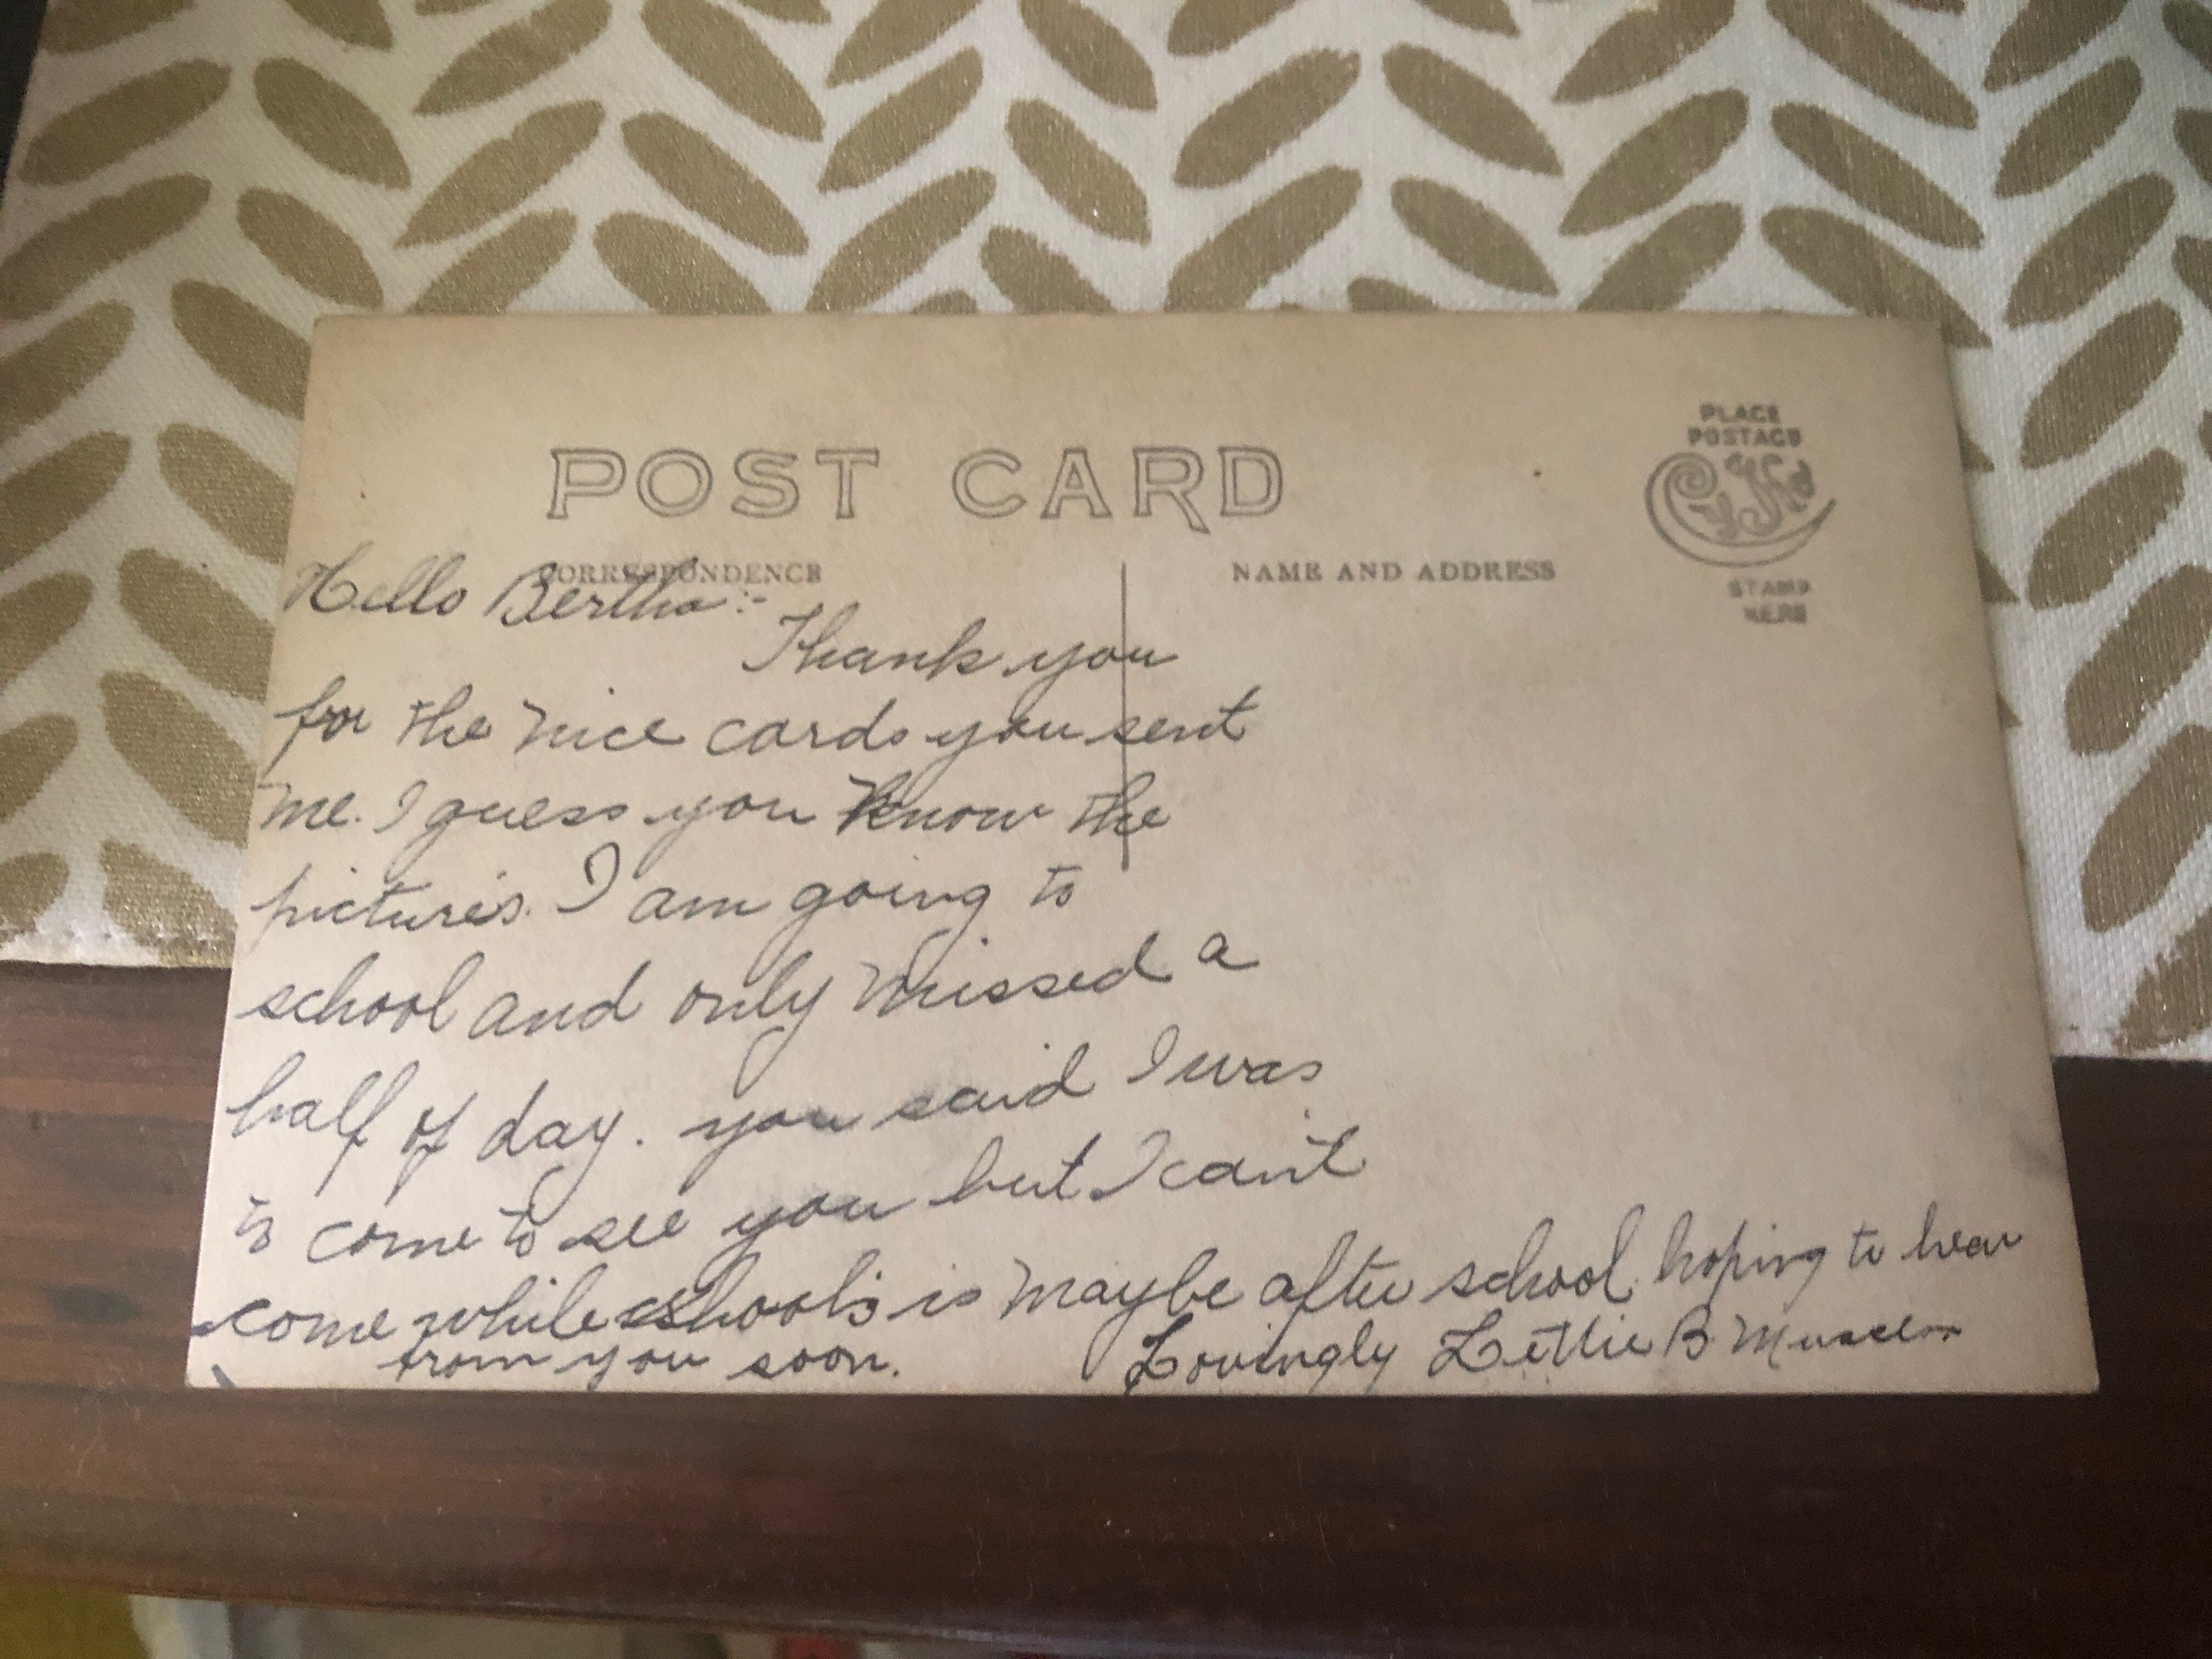 POST CARD
CORRESPONDENCE
NAME AND ADDRESS
PLACE
POSTAGE
STAMP
HERE
Hello Bertha:-
Thank you
for the nice cards you sent
me. I guess you know the
pictures. I am going to
school and only missed a
half of day. you said I was
to come to see you but I can't
come while schools is maybe after school. hoping to hear
from you soon.
Lovingly Lettie B